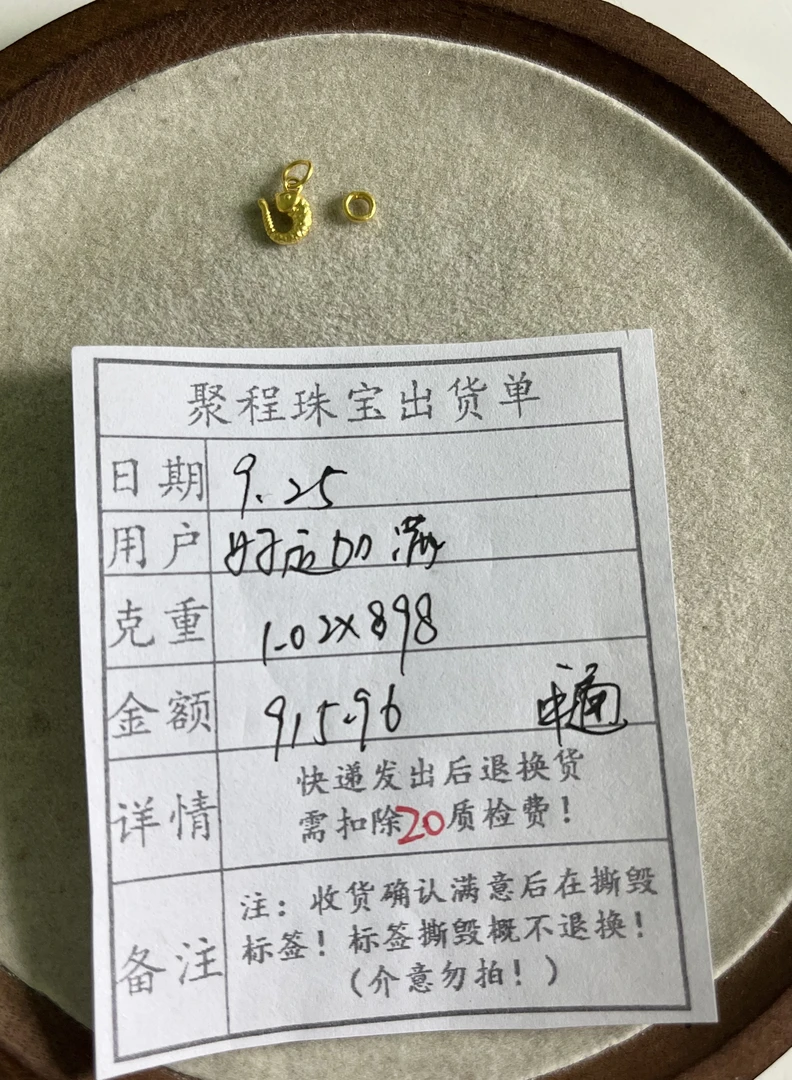 聚程珠宝出货单
日期 9.25
用户 好运加满
克重 1.02×898
金额 915.96 中通
详情 快递发出后退换货
需扣除20质检费！
备注 注：收货确认满意后在撕毁
标签！标签撕毁概不退换！
（介意勿拍！）